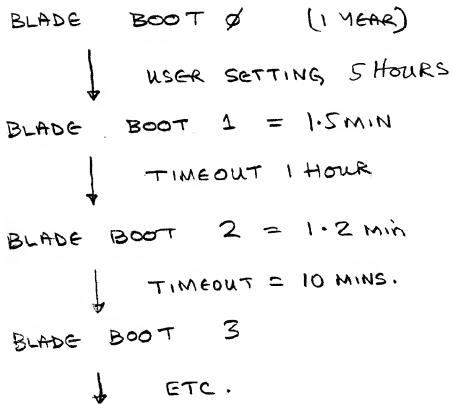 BLADE BOOT Ø (1 YEAR)
USER SETTING 5 HOURS
BLADE BOOT 1 = 1.5 MIN
TIMEOUT 1 HOUR
BLADE BOOT 2 = 1.2 min
TIMEOUT = 10 MINS.
BLADE BOOT 3
ETC.